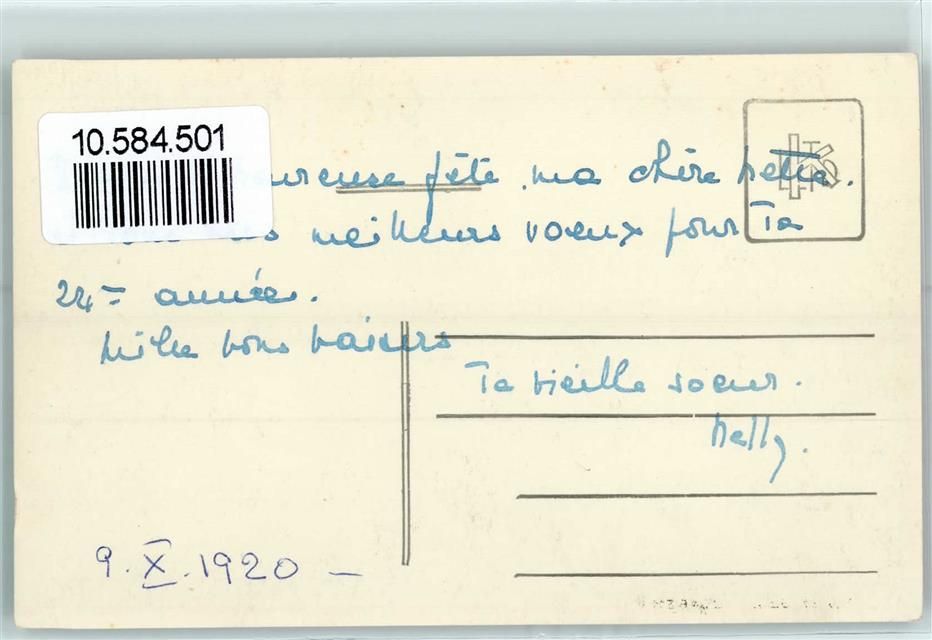 10.584.501
fête, ma chère
meilleurs voeux pour Ta
24= année.
Mille bons baisers
Ta vieille soeur.
Nelly.
9.X.1920 —